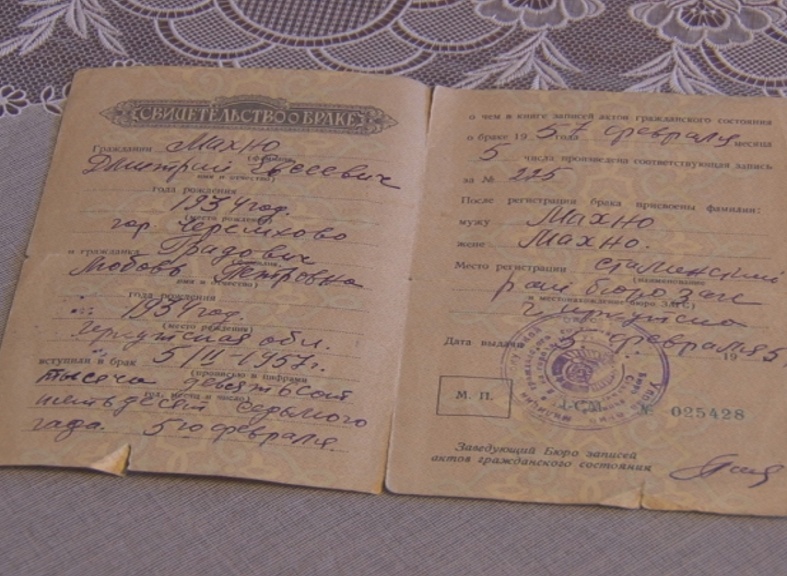 СВИДЕТЕЛЬСТВО О БРАКЕ
Гражданин Махно
(фамилия)
Дмитрий Евсеевич
имя и отчество)
года рождения
1934 год.
(место рождения)
гор. Черемхово
и гражданка Градович
Любовь Петровна
имя и отчество)
года рождения
1934 год.
(место рождения)
Иркутская обл.
вступили в брак 5/II-1957 г.
(прописью и цифрами
тысяча девятьсот
год, месяц и число)
пятьдесят седьмого
года. 5го февраля.
о чем в книге записей актов гражданского состояния
о браке 1957 года февраля месяца
5 числа произведена соответствующая запись
за № 225
После регистрации брака присвоены фамилии:
мужу Махно
жене Махно.
Место регистрации Сталинский
(наименование
рай бюро загс
и местонахождение бюро ЗАГС)
г. Иркутска
Дата выдачи 5 февраля 195
М. П.
I-СМ № 025428
Заведующий Бюро записей
актов гражданского состояния